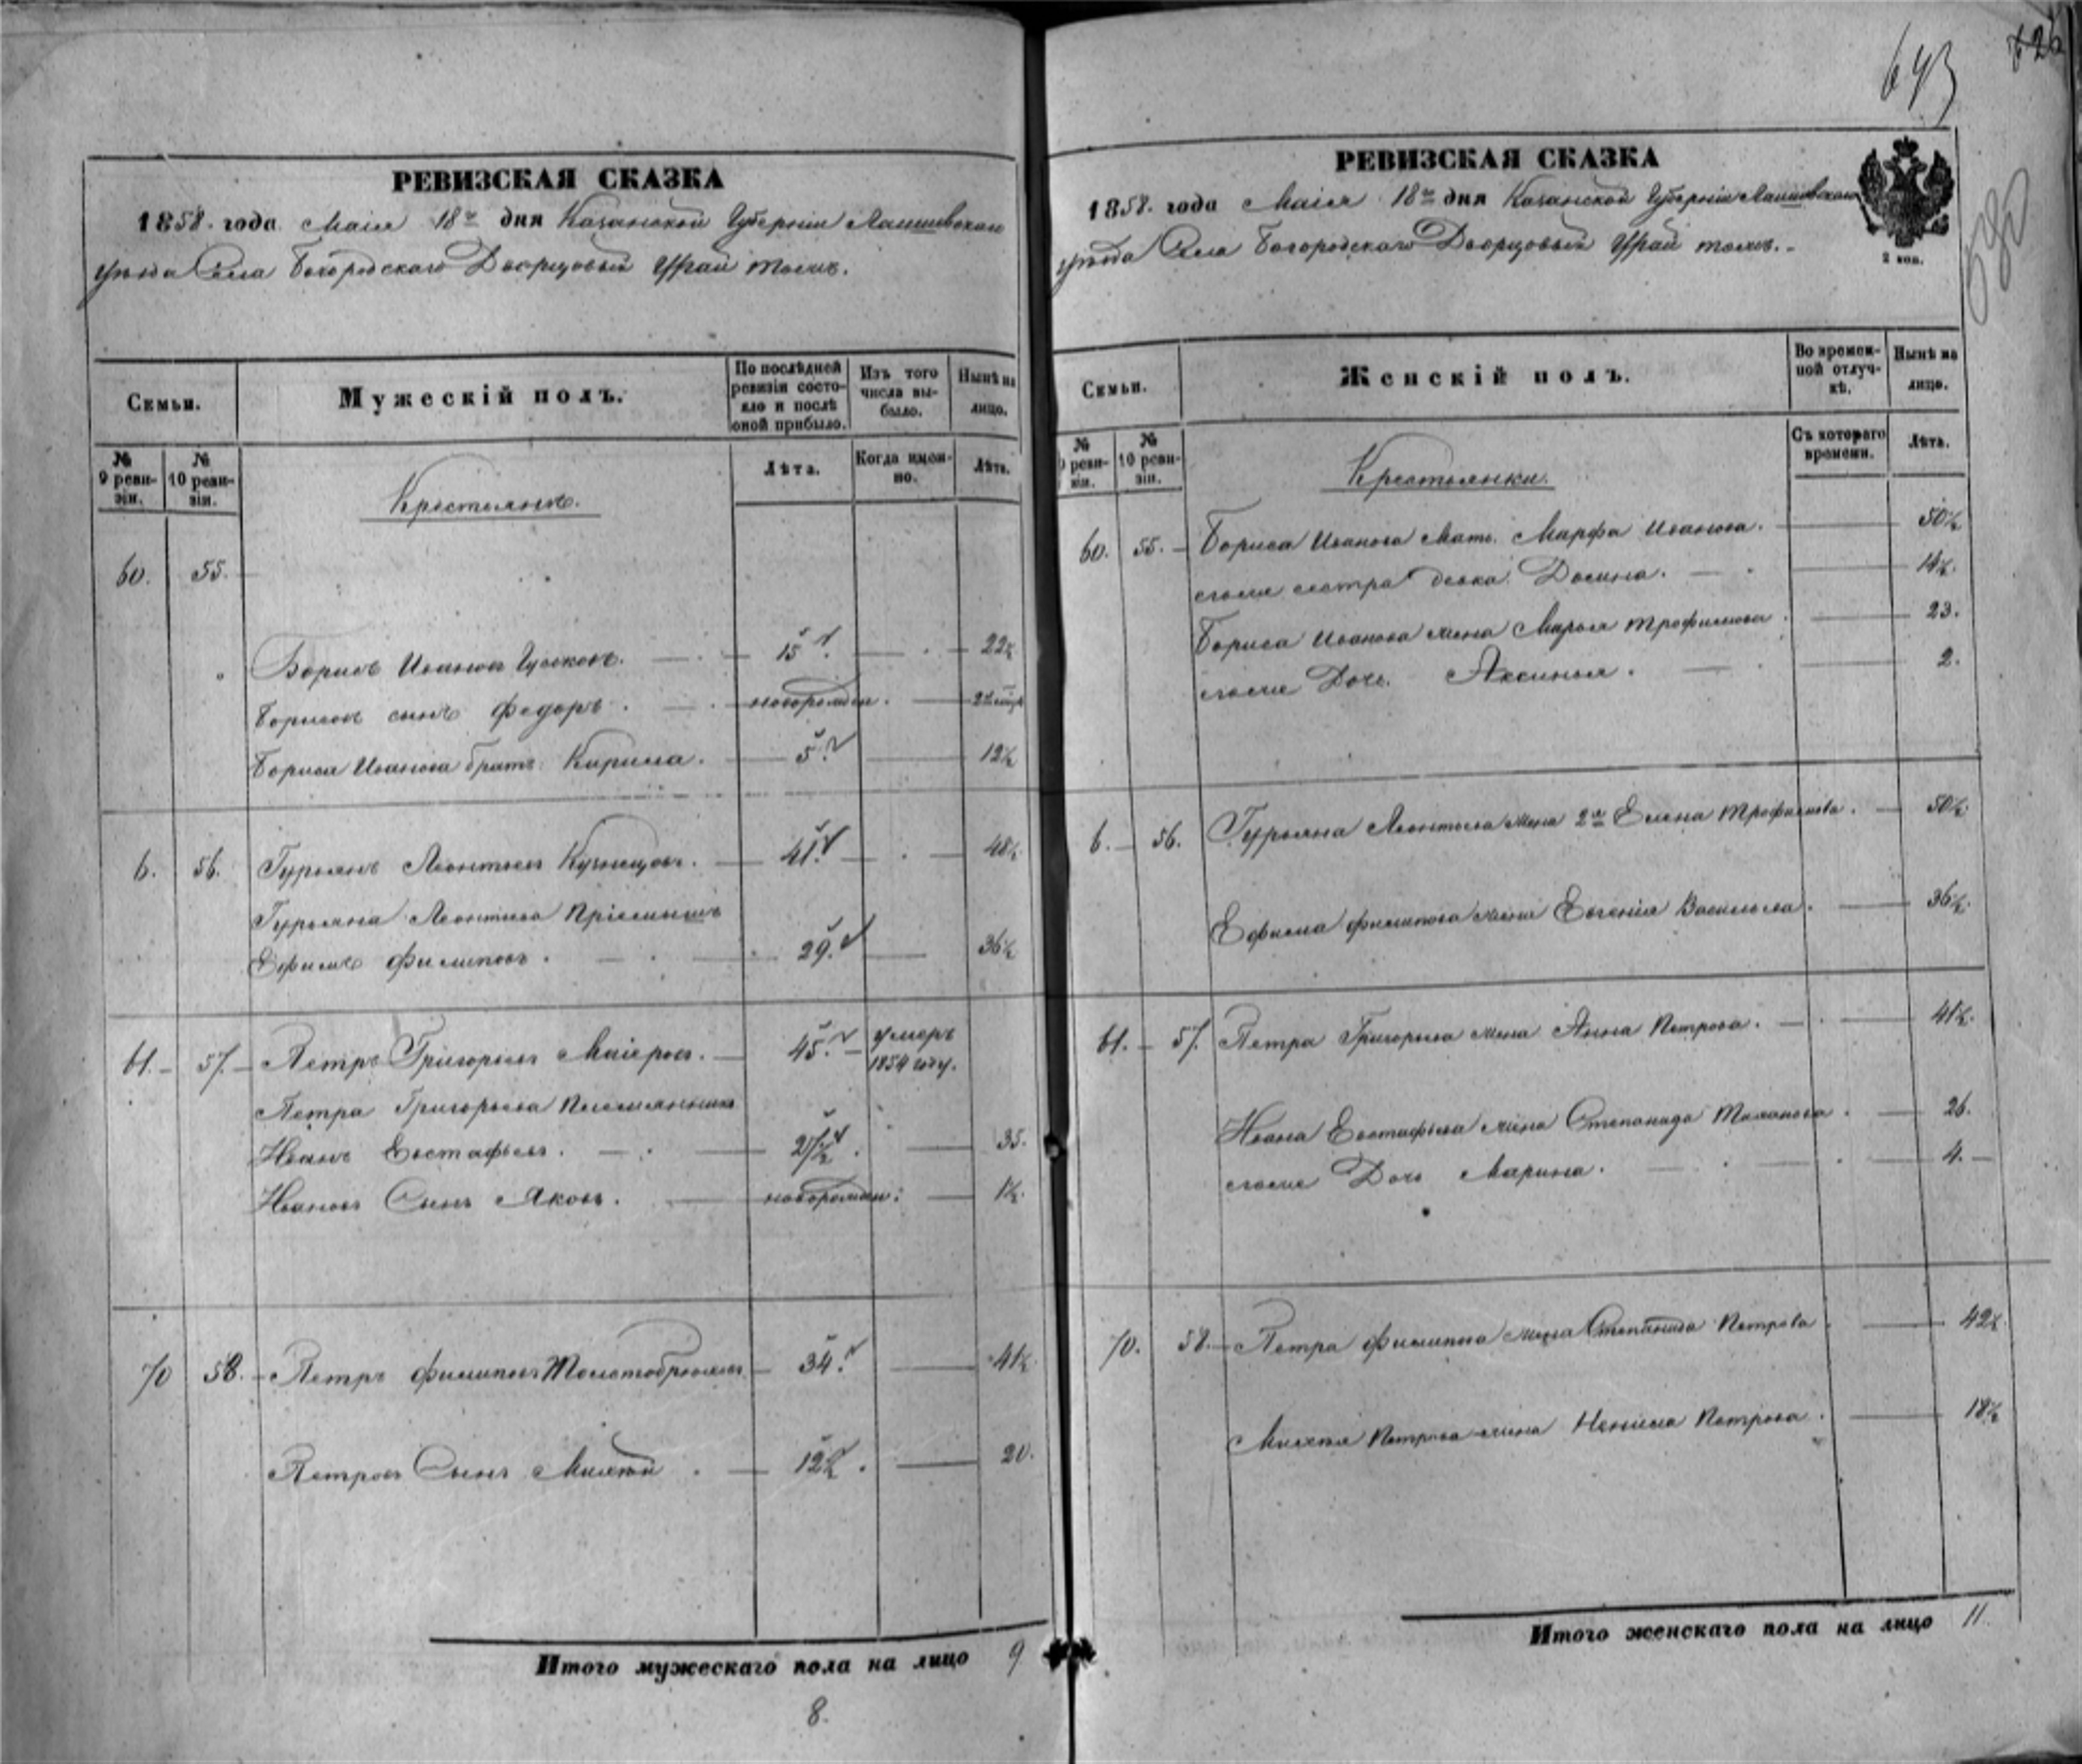 643
РЕВИЗСКАЯ СКАЗКА
1858. года Маія 18го дня Казанской Губерніи Лаишевскаго
уѣзда Села Богородскаго Дворцовый Урай тожъ.
Семьи.
Мужескій полъ.
По послѣдней ревизіи состояло и послѣ оной прибыло.
Изъ того числа выбыло.
Нынѣ на лицо.
№ 9 ревизіи.
№ 10 ревизіи.
Лѣта.
Когда именно.
Лѣта.
Крестьяне.
60. 55.
Борисъ Ивановъ 15. 22½
Борисовъ сынъ Федоръ. новорожден.
Бориса Иванова братъ Кирила. 5. 12½
6. 56. Гурьянъ Леонтьевъ Кузнецовъ. 41. 48½
Гурьяна Леонтьева Пріемышъ
Ефимъ Филиповъ. 29. 36½
61. 57. Петръ Григорьевъ 45. умеръ 1854 году.
Петра Григорьева племянникъ
Иванъ Евстафьевъ. 27½. 35.
Ивановъ Сынъ Яковъ. новорожден. 1½.
70 58. Петръ Филиповъ Толстобровъ 34. 41½.
Петровъ Сынъ Михѣй. 12½. 20.
Итого мужескаго пола на лицо 9
8.
РЕВИЗСКАЯ СКАЗКА
1858. года Маія 18го дня Казанской Губерніи Лаишевскаго
уѣзда Села Богородскаго Дворцовый Урай тожъ.
2 коп.
Семьи.
Женскій полъ.
Во временной отлучкѣ.
Нынѣ на лицо.
№ 9 ревизіи.
№ 10 ревизіи.
Съ котораго времени.
Лѣта.
Крестьянки.
60. 55. Бориса Иванова Мать Марфа Иванова. 50½
егоже сестра девка Домна. 14½.
Бориса Иванова жена Марья Трофимова. 23.
егоже Дочь Аксинья. 2.
6. 56. Гурьяна Леонтьева жена 2я Елена Трофимова. 50½
Ефима Филипова жена Евгенія Васильева. 36½.
61. 57. Петра Григорьева жена Анна Петрова. 41½.
Ивана Евстафьева жена Степанида 26.
егоже Дочь Марина. 4.
70. 58. Петра Филипова жена Степанида Петрова 42½.
Михѣя Петрова жена Ненила Петрова. 18½
Итого женскаго пола на лицо 11.